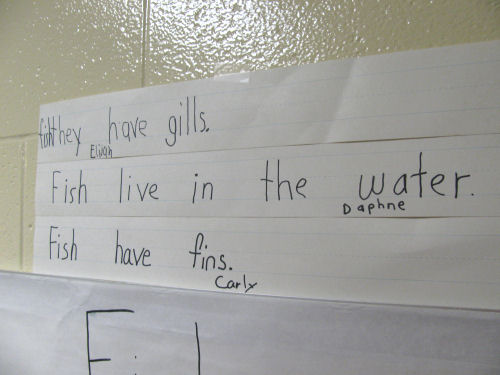 they have gills.
Elijah
Fish live in the water.
Daphne
Fish have fins.
Carly